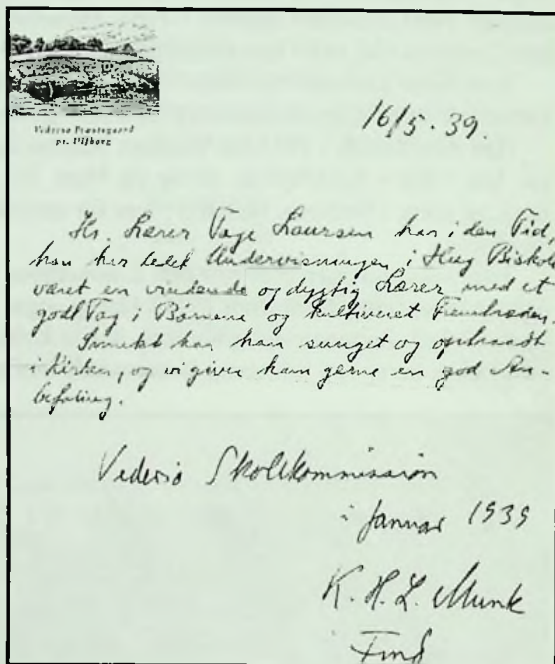 Vedersø Præstegaard
pr. Ulfborg
16/5. 39.
Hr. Lærer Tage Laursen har i den Tid,
han har ledet Undervisningen i Hug
været en vindende og dygtig Lærer med et
godt Tag i Børnene og kultiveret
Smukt har han sunget og
i Kirken, og vi giver ham gerne en god An-
befaling.
Vedersø Skolekommission
i Januar 1939
K. H. L. Munk